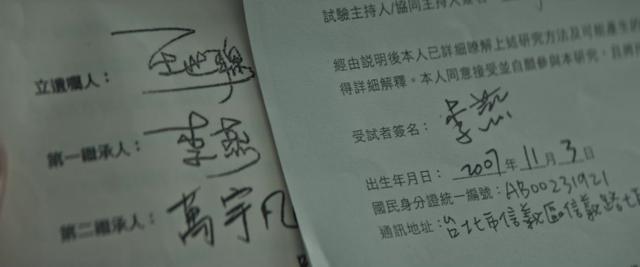 立遺囑人：
第一繼承人：
第二繼承人：萬宇凡
試驗主持人/協同主持人簽名
經由說明後本人已詳細瞭解上述研究方法及可能產生的
得詳細解釋。本人同意接受並自願參與本研究，且
受試者簽名：李
出生年月日：2007年11月3日
國民身分證統一編號：AB00231921
通訊地址：台北市信義區信義路七